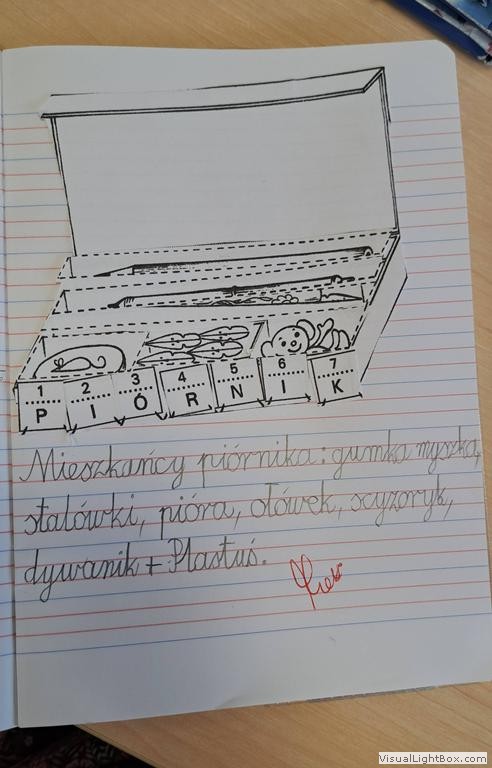 1 2 3 4 5 6 7
P I Ó R N I K
Mieszkańcy piórnika: gumka myszka,
stalówki, pióra, ołówek, scyzoryk,
dywanik + Plastuś.
VisualLightBox.com